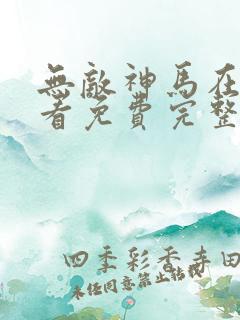 無敵神馬在
看免費完整
四季彩香寺田
未任同意禁止转载